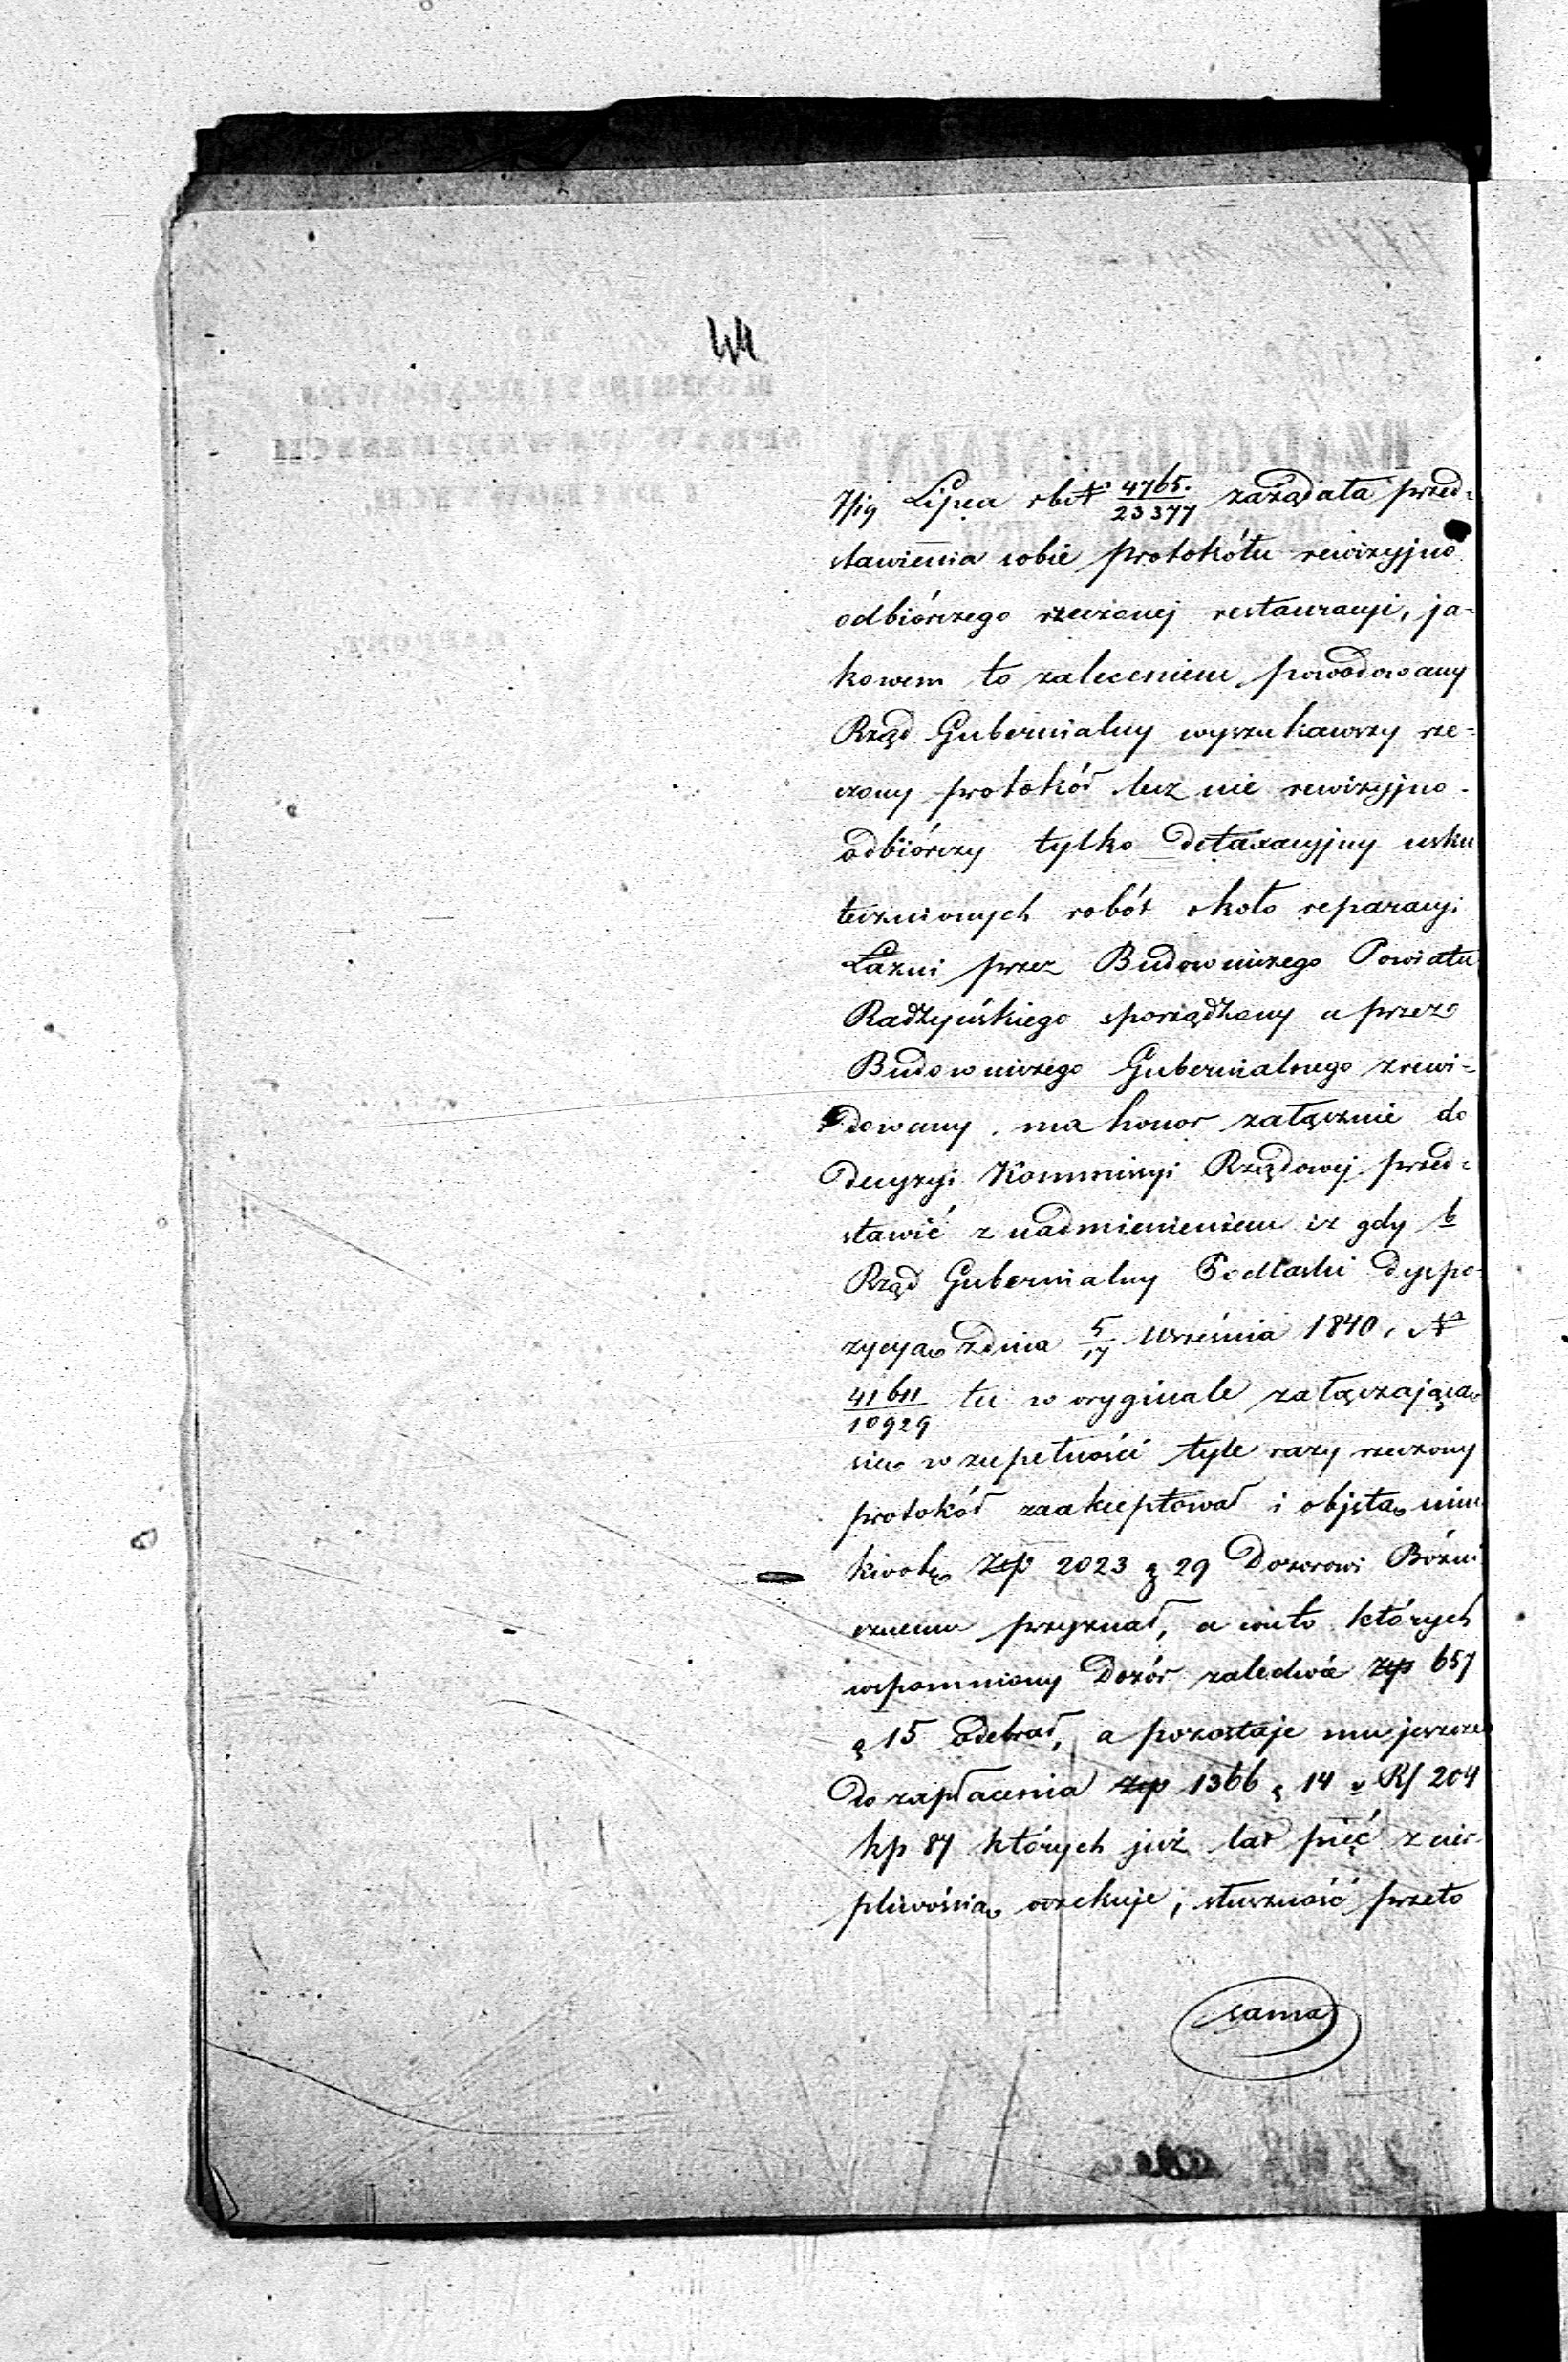 44
7/19 Lipca rb N° 4765./23377 zażądała przed-
stawienia sobie protokółu rewizyjno
odbiórczego rzeczonej restauracyi, ja-
kowem to zaleceniem powodowany
Rząd Gubernialny wyszukawszy rze-
czony protokół lecz nie rewizyjno-
odbiórczy tylko detaxacyjny usku
tecznionych robót około reparacyi
Łaźni przez Budowniczego Powiatu
Radzyńskiego sporządzony a przez
Budowniczego Gubernialnego zrewi-
dowany, ma honor załącznie do
decyzyi Kommissyi Rządowej przed-
stawić z nadmienieniem iż gdy b
Rząd Gubernialny Podlaski dyspo-
zycyą z dnia 5/17 Września 1840 r. N°
41611/10929 tu w oryginale załączającą
się w zupełności tyle razy rzeczony
protokół zaakceptował i objętą nim
kwotę Złp 2023 g 29 Dozorowi Bóżni
cznemu przyznał, a w których
wspomniony Dozór zaledwie Złp 657
g 15 odebrał, a pozostaje mu jeszcze
do zapłacenia Złp 1366 g 14 v Rs 204
kp 87 których już lat pięć z cier-
pliwością oczekuje, słuszność przeto
sama